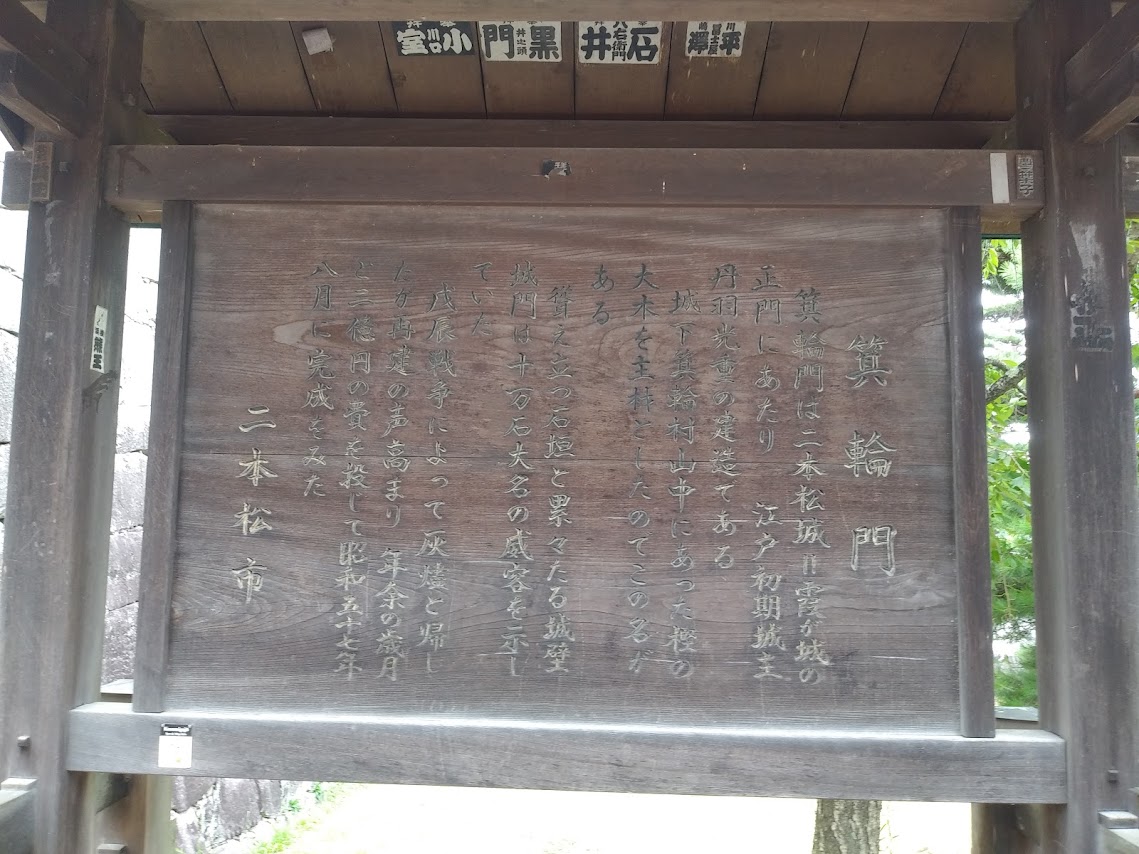 箕輪門
箕輪門は二本松城〃霞が城の
正門にあたり 江戸初期城主
丹羽光重の建造である
城下箕輪村山中にあった樫の
大木を主柱としたのでこの名が
ある
聳え立つ石垣と累々たる城壁
城門は十万石大名の威容を示し
ていた
戊辰戦争によって灰燼と帰し
たが再建の声高まり 年余の歳月
と二億円の費を投じて昭和五十七年
八月に完成をみた
二本松市
川口
小室
井之頭
黒門
八右衛門
石井
平澤